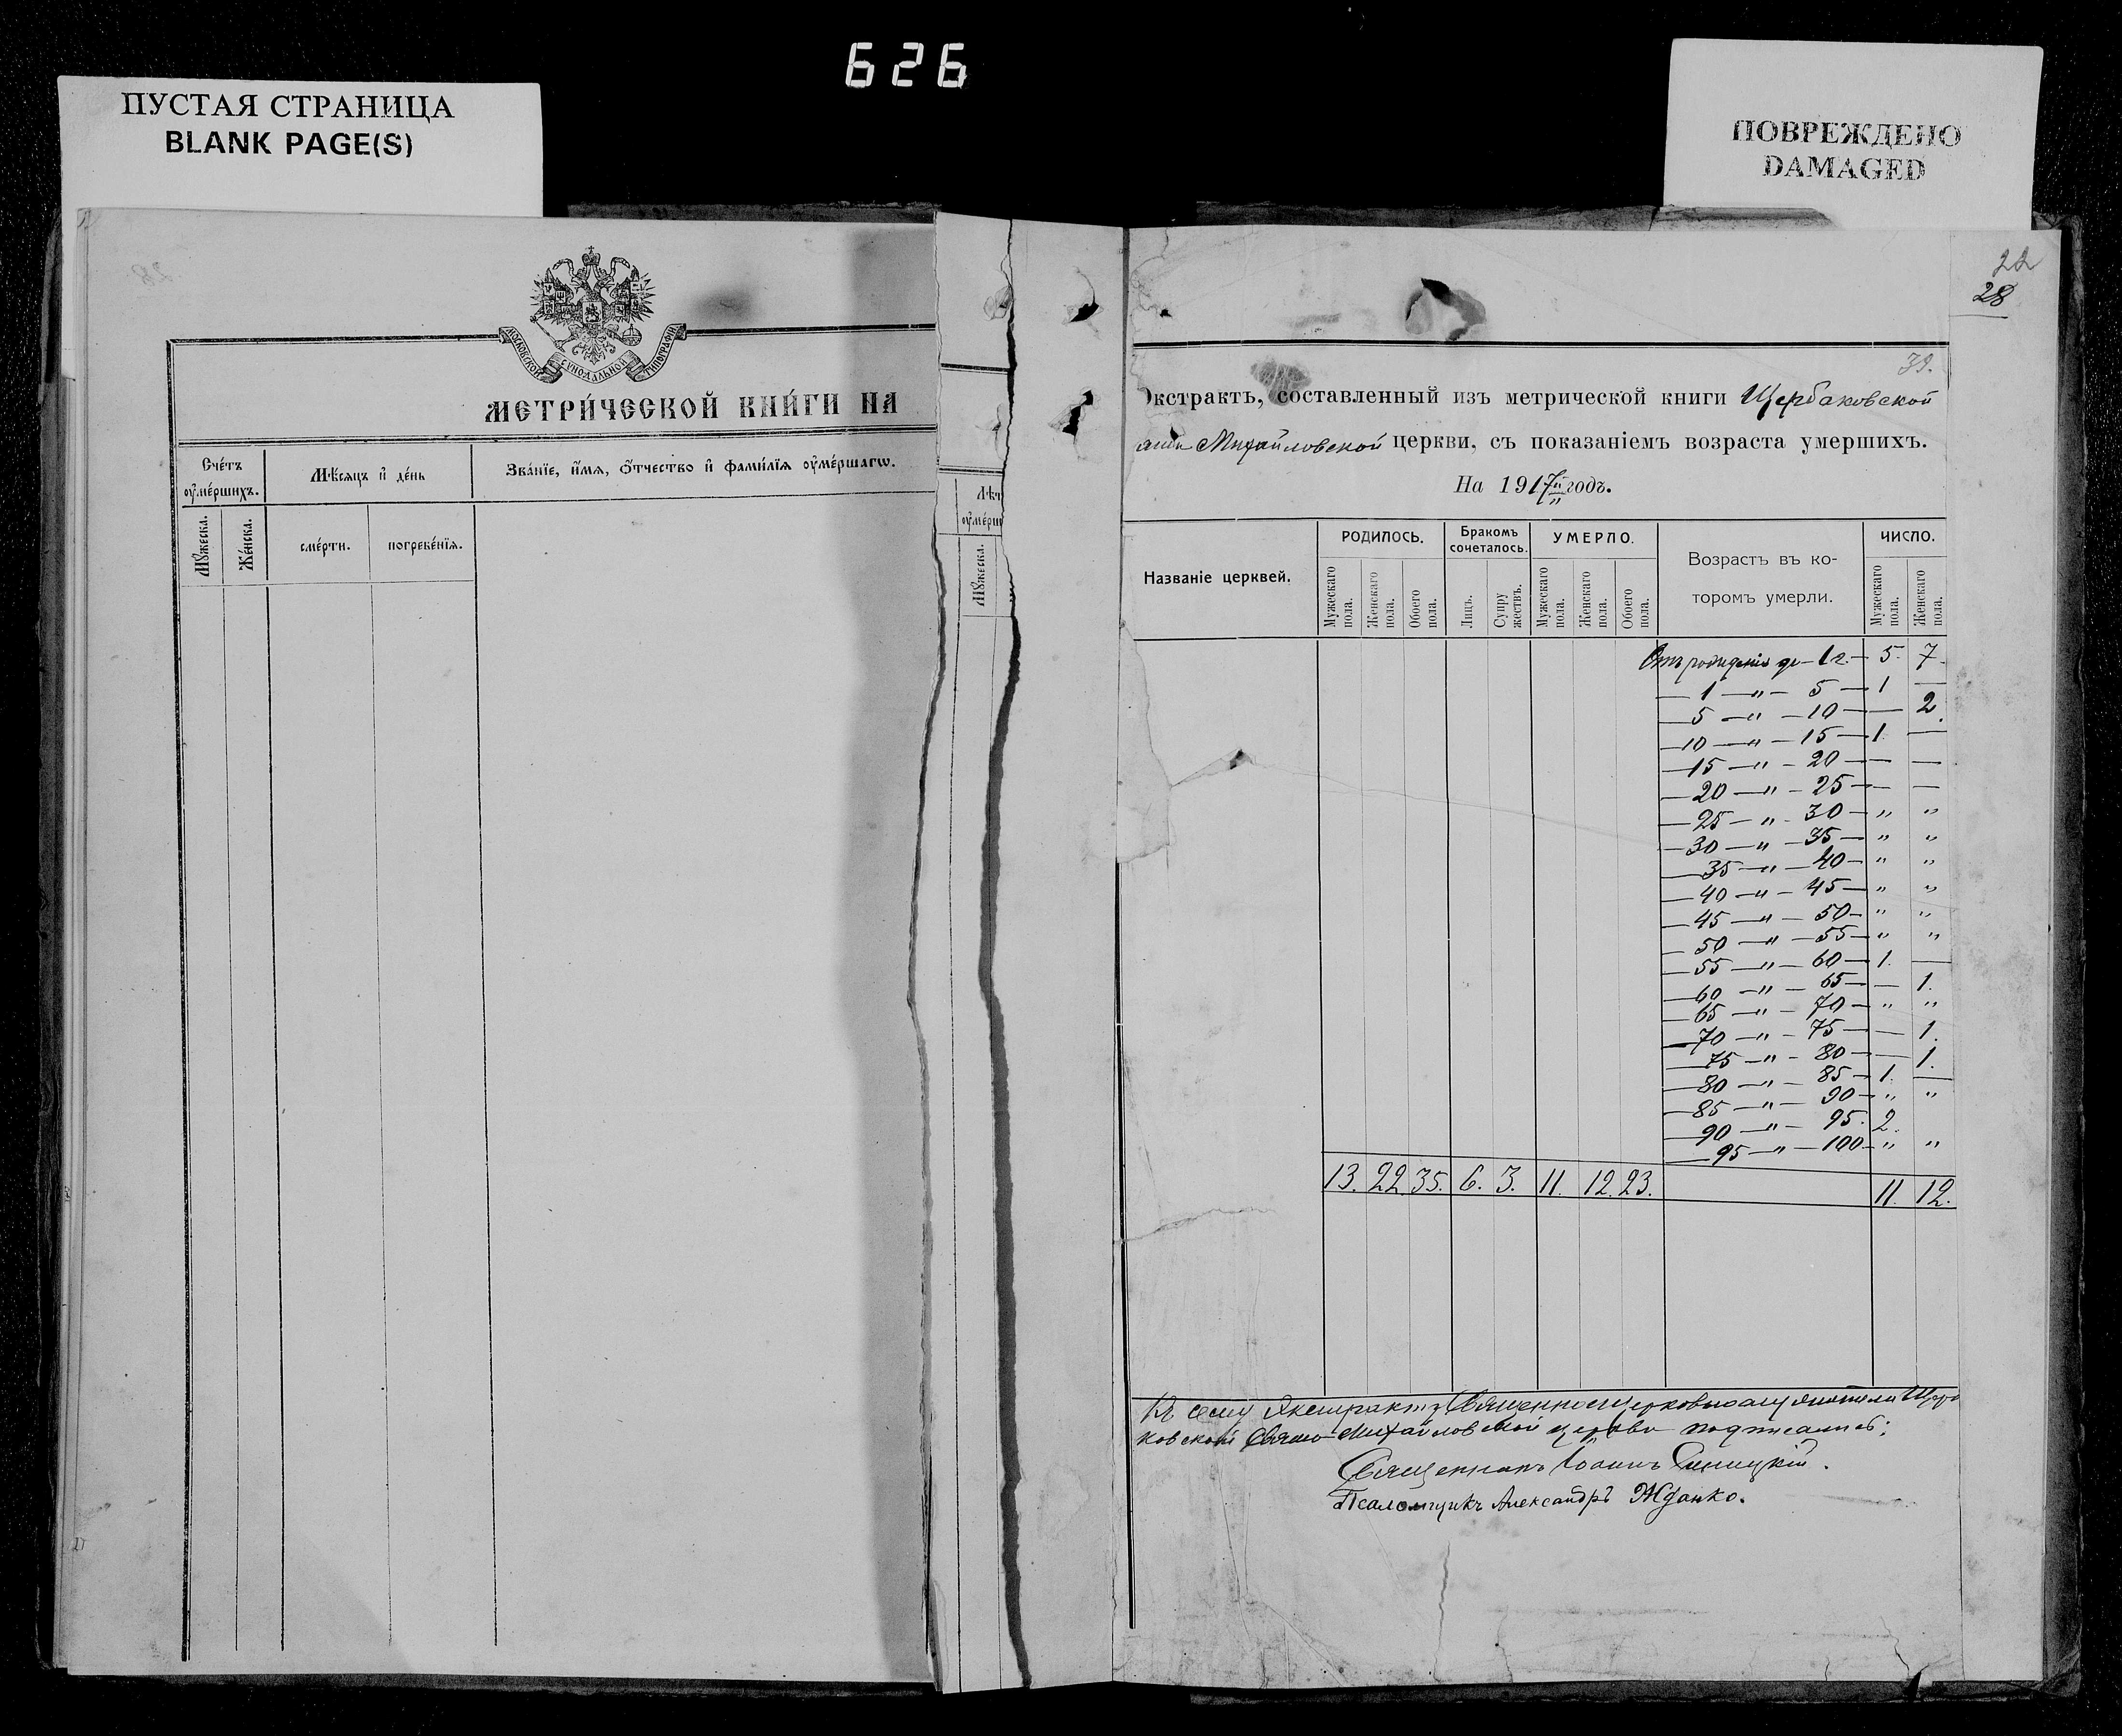 626
ПУСТАЯ СТРАНИЦА
BLANK PAGE(S)
ПОВРЕЖДЕНО
DAMAGED
МОСКОВСКОЙ СУНОДАЛЬНОЙ ТИПОГРАФІИ
МЕТРИ́ЧЕСКОЙ КНИ́ГИ НА
Сче́тъ оу҆ме́ршихъ.
Мѣ́сяцъ и҆ де́нь
Зва́нїе, и҆́мя, ѻ҆́тчество и҆ фами́лїя оу҆ме́ршагѡ.
Мꙋ́жеска.
Же́нска.
сме́рти.
погребе́нїя.
Лѣт
оу҆ме́рш
Мꙋ́жеска.
22
28
39.
Экстрактъ, составленный изъ метрической книги Щербаковской
Михайловской церкви, съ показаніемъ возраста умершихъ.
На 1917й годъ.
Названіе церквей.
РОДИЛОСЬ.
Бракомъ сочеталось.
УМЕРЛО.
Возрастъ въ которомъ умерли.
ЧИСЛО.
Мужескаго пола.
Женскаго пола.
Обоего пола.
Лицъ.
Супружествъ.
Мужескаго пола.
Женскаго пола.
Обоего пола.
Мужескаго пола.
Женскаго пола.
Отъ рожденія до – 1 г. – 5. 7.
1 – " – 5 – 1 –
5 – " – 10 – – 2.
10 – " – 15 – 1. –
15 – " – 20 – – –
20 – " – 25 – – –
25 – " – 30 – " "
30 – " – 35 – " "
35 – " – 40 – " "
40 – " – 45 – " "
45 – " – 50 – " "
50 – " – 55 – " "
55 – " – 60 – 1. –
60 – " – 65 – – 1.
65 – " – 70 – " "
70 – " – 75 – – 1.
75 – " – 80 – – 1.
80 – " – 85 – 1. –
85 – " – 90 – " "
90 – " – 95. 2.
95 – " – 100 – " "
13. 22 35. 6. 3. 11. 12. 23. 11. 12.
Къ сему Экстракту Священноцерковнослужители Щерба
ковской Свято-Михайловской церкви подписались:
Священникъ Іоаннъ Синицкій.
Псаломщикъ Александръ Жданко.